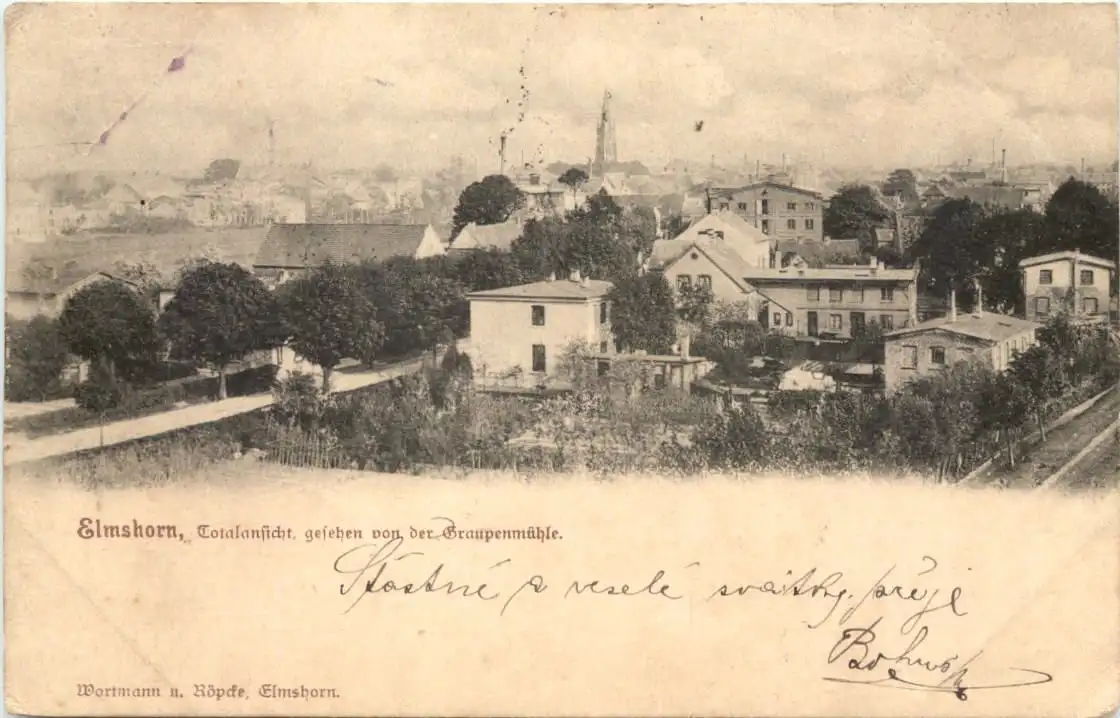 Elmshorn, Totalansicht, gesehen von der Graupenmühle.
Šťastné a veselé svátky přeje
Wortmann u. Röpcke, Elmshorn.